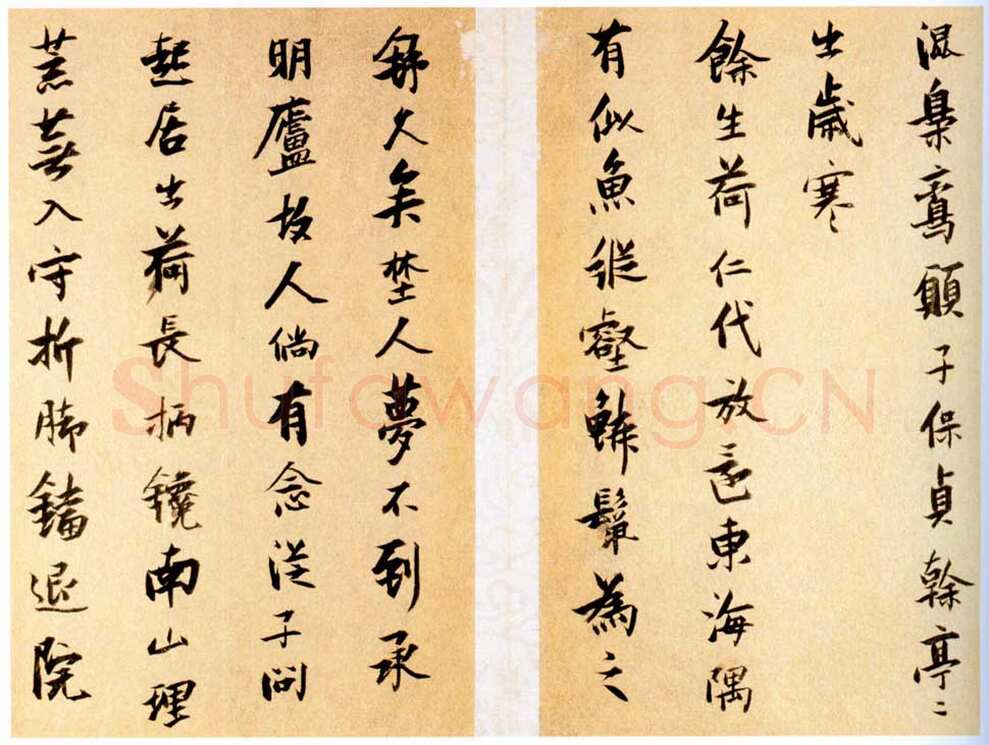 混梟鸞願子保貞幹亭〻
出歲寒
餘生荷仁代放還東海隅
有似魚縱壑鱗鬐為之
舒久矣埜人夢不到承
明廬故人倘有念從子問
起居出荷長柄鑱南山理
荒蕪入守折腳鐺退院
Shufawang.CN